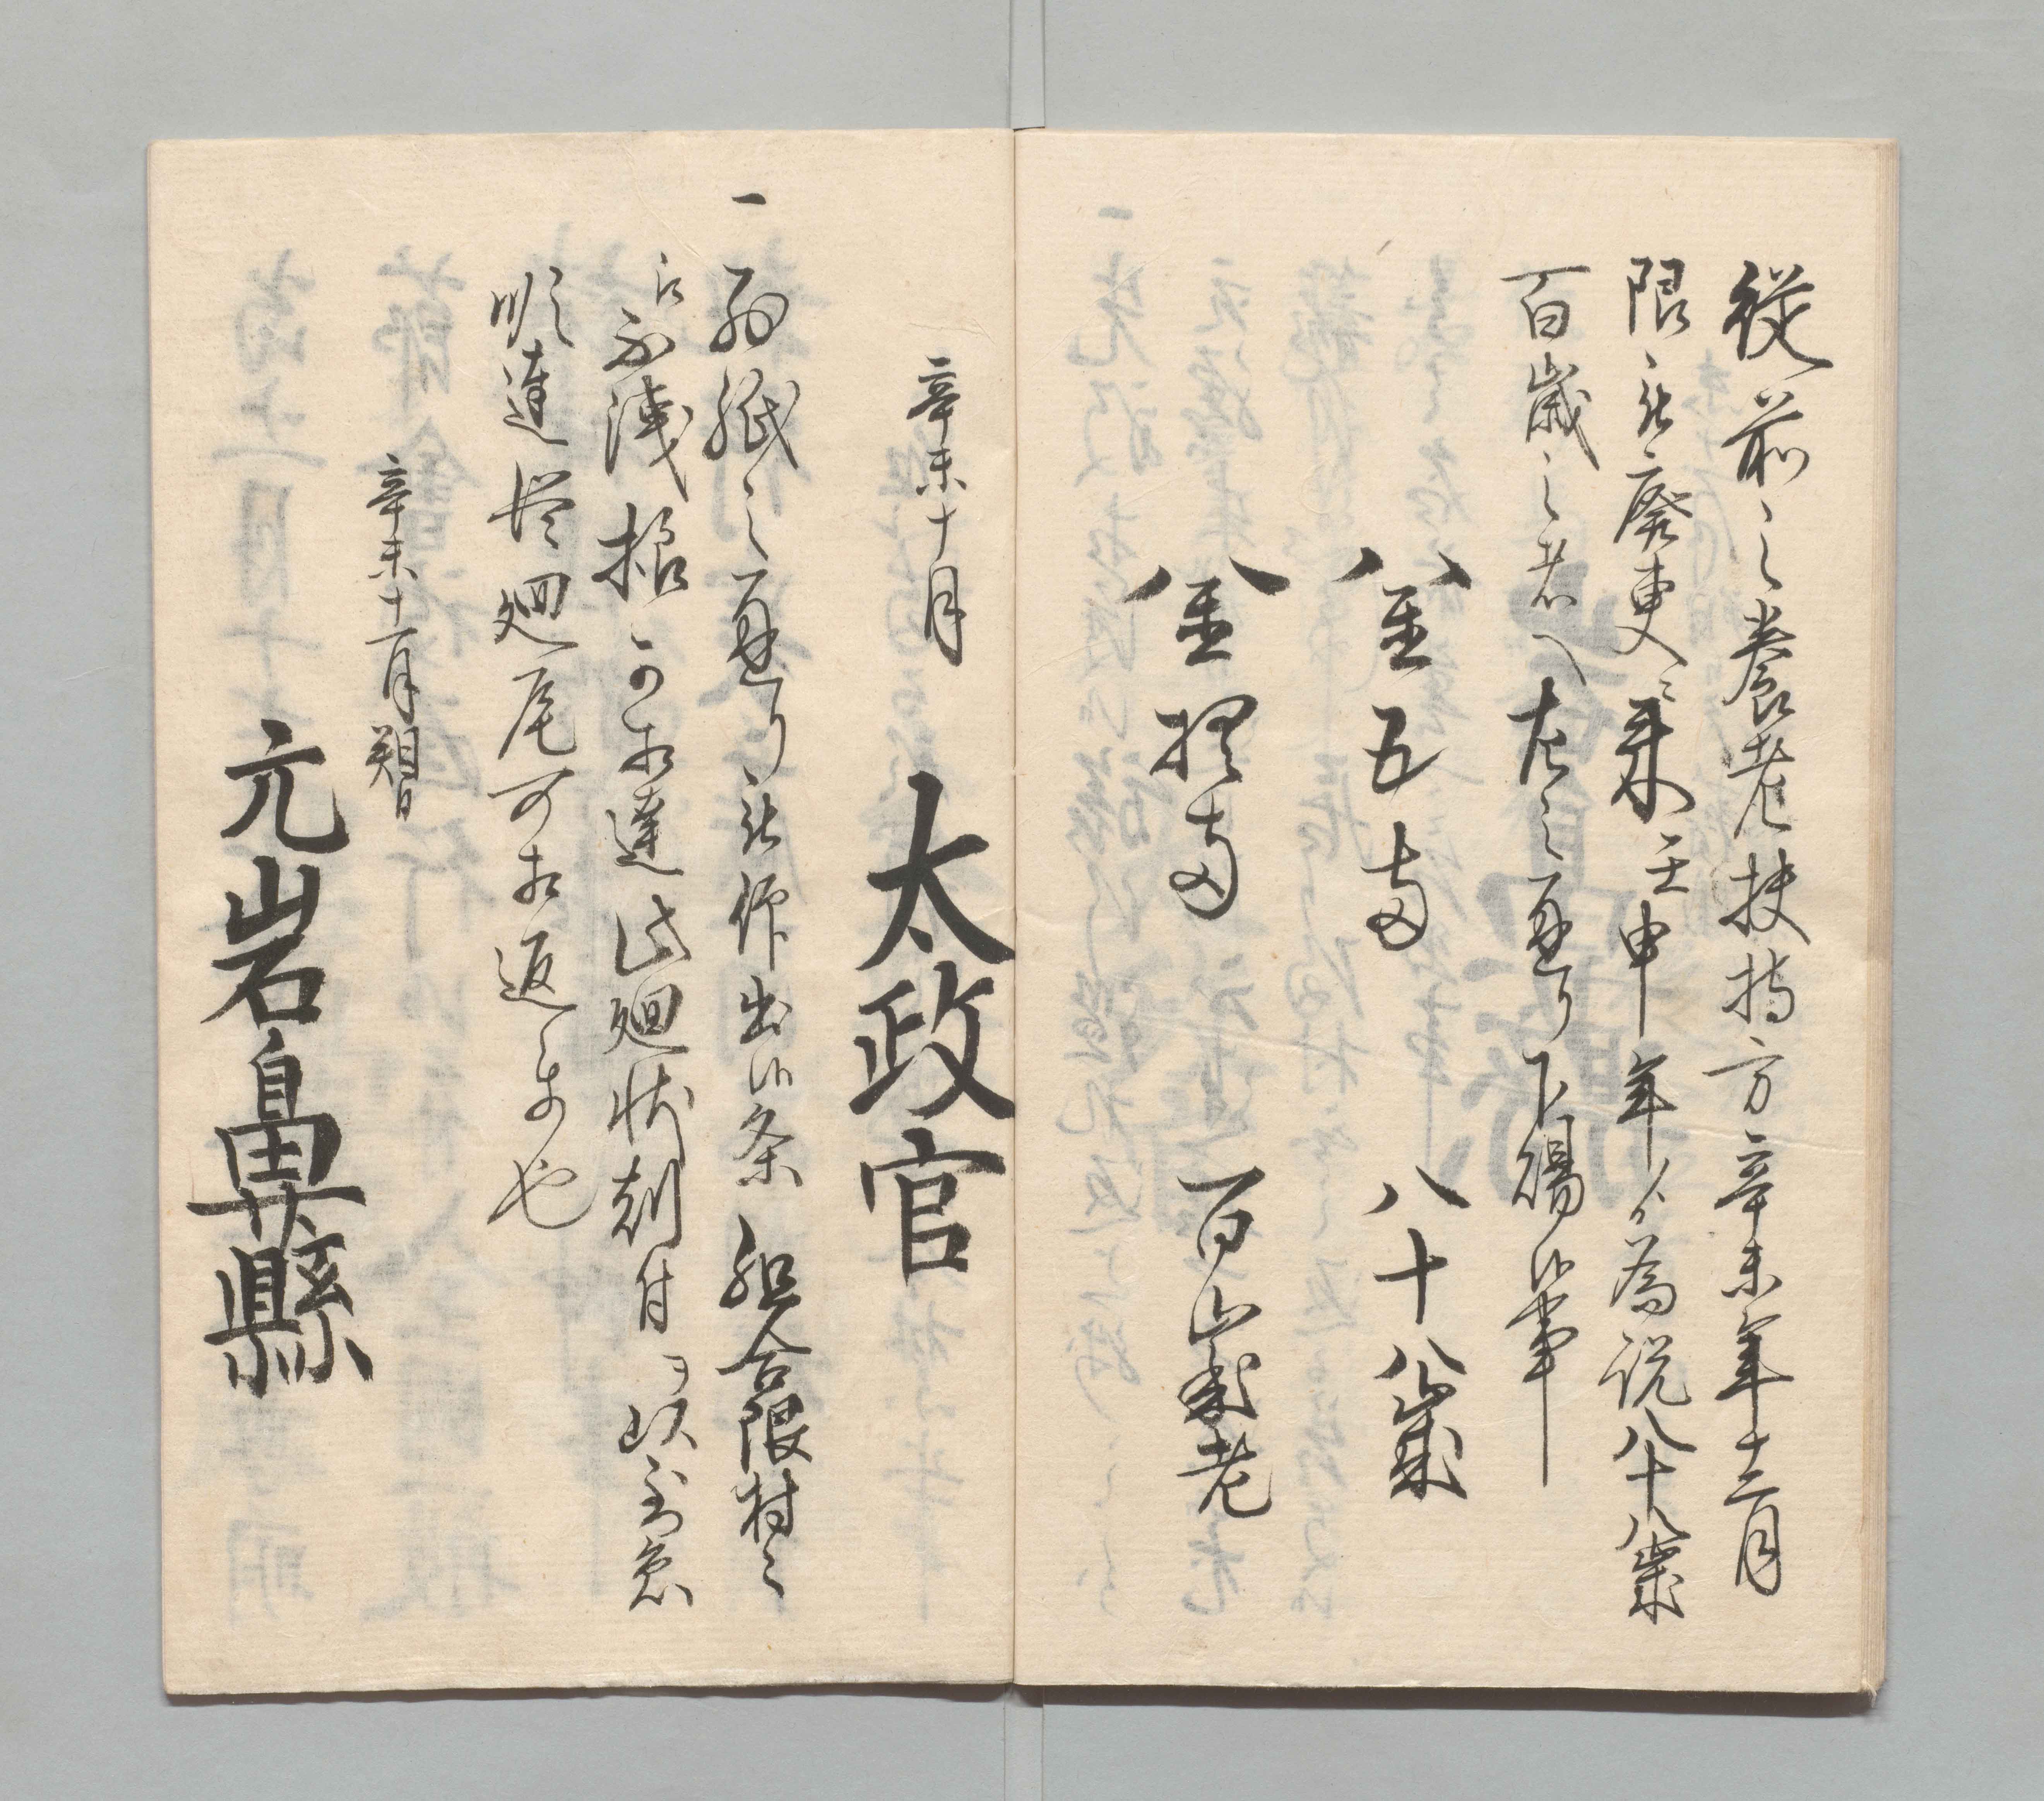 従前之養老扶持方辛未年十二月
限被廃更ニ来壬申年ゟ為祝八十八歳
百歳之者へ左之通り下賜候事
金五両　八十八歳
金拾両　百歳老
辛未十月
太政官
一　別紙之通り被仰出候条組合限村々
江不洩様可相達此廻状刻付ヲ以至急
順達従廻尾可相返もの也
辛未十一月朔日
元岩鼻縣